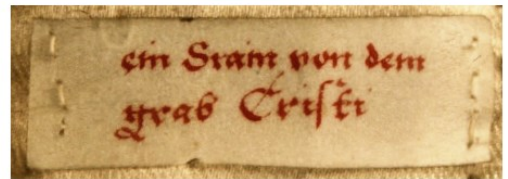 ein Stain von dem
grab Cristi